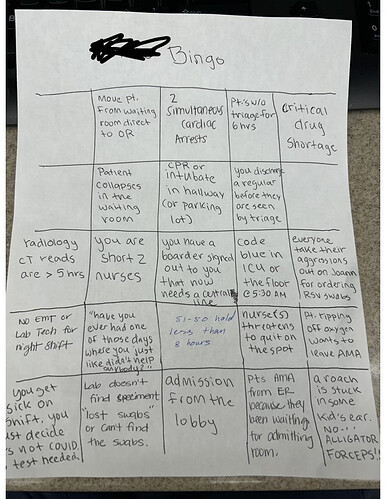 Bingo
Move pt.
from waiting
room direct
to OR
2
Simultaneous
Cardiac
Arrests
Pt's w/o
triage for
6 hrs
Critical
drug
Shortage
Patient
collapses
in the
waiting
room
CPR or
intubate
in hallway
(or parking
lot)
you discharge
a regular
before they
are seen
by triage
radiology
CT reads
are > 5 hrs
you are
short 2
nurses
you have a
boarder signed
out to you
that now
needs a central
line
code
blue in
ICU or
the floor
@ 5:30 AM
everyone
take their
aggressions
out on Joann
for ordering
RSV swabs
NO EMT or
Lab Tech for
night shift
"Have you
ever had one
of those days
where you just
like didn't help
anybody?"
51-50 hold
less than
8 hours
nurse(s)
threatens
to quit on
the spot
Pt. ripping
off oxygen
wants to
leave AMA
you get
sick on
shift. you
just decide
it's not COVID
test needed.
Lab doesn't
find specimen
"lost swabs"
or can't find
the swabs.
admission
from the
lobby
Pts AMA
from ER
because they
been waiting
for admitting
room.
a roach
is stuck
in some
kid's ear.
NO...
ALLIGATOR
FORCEPS!!